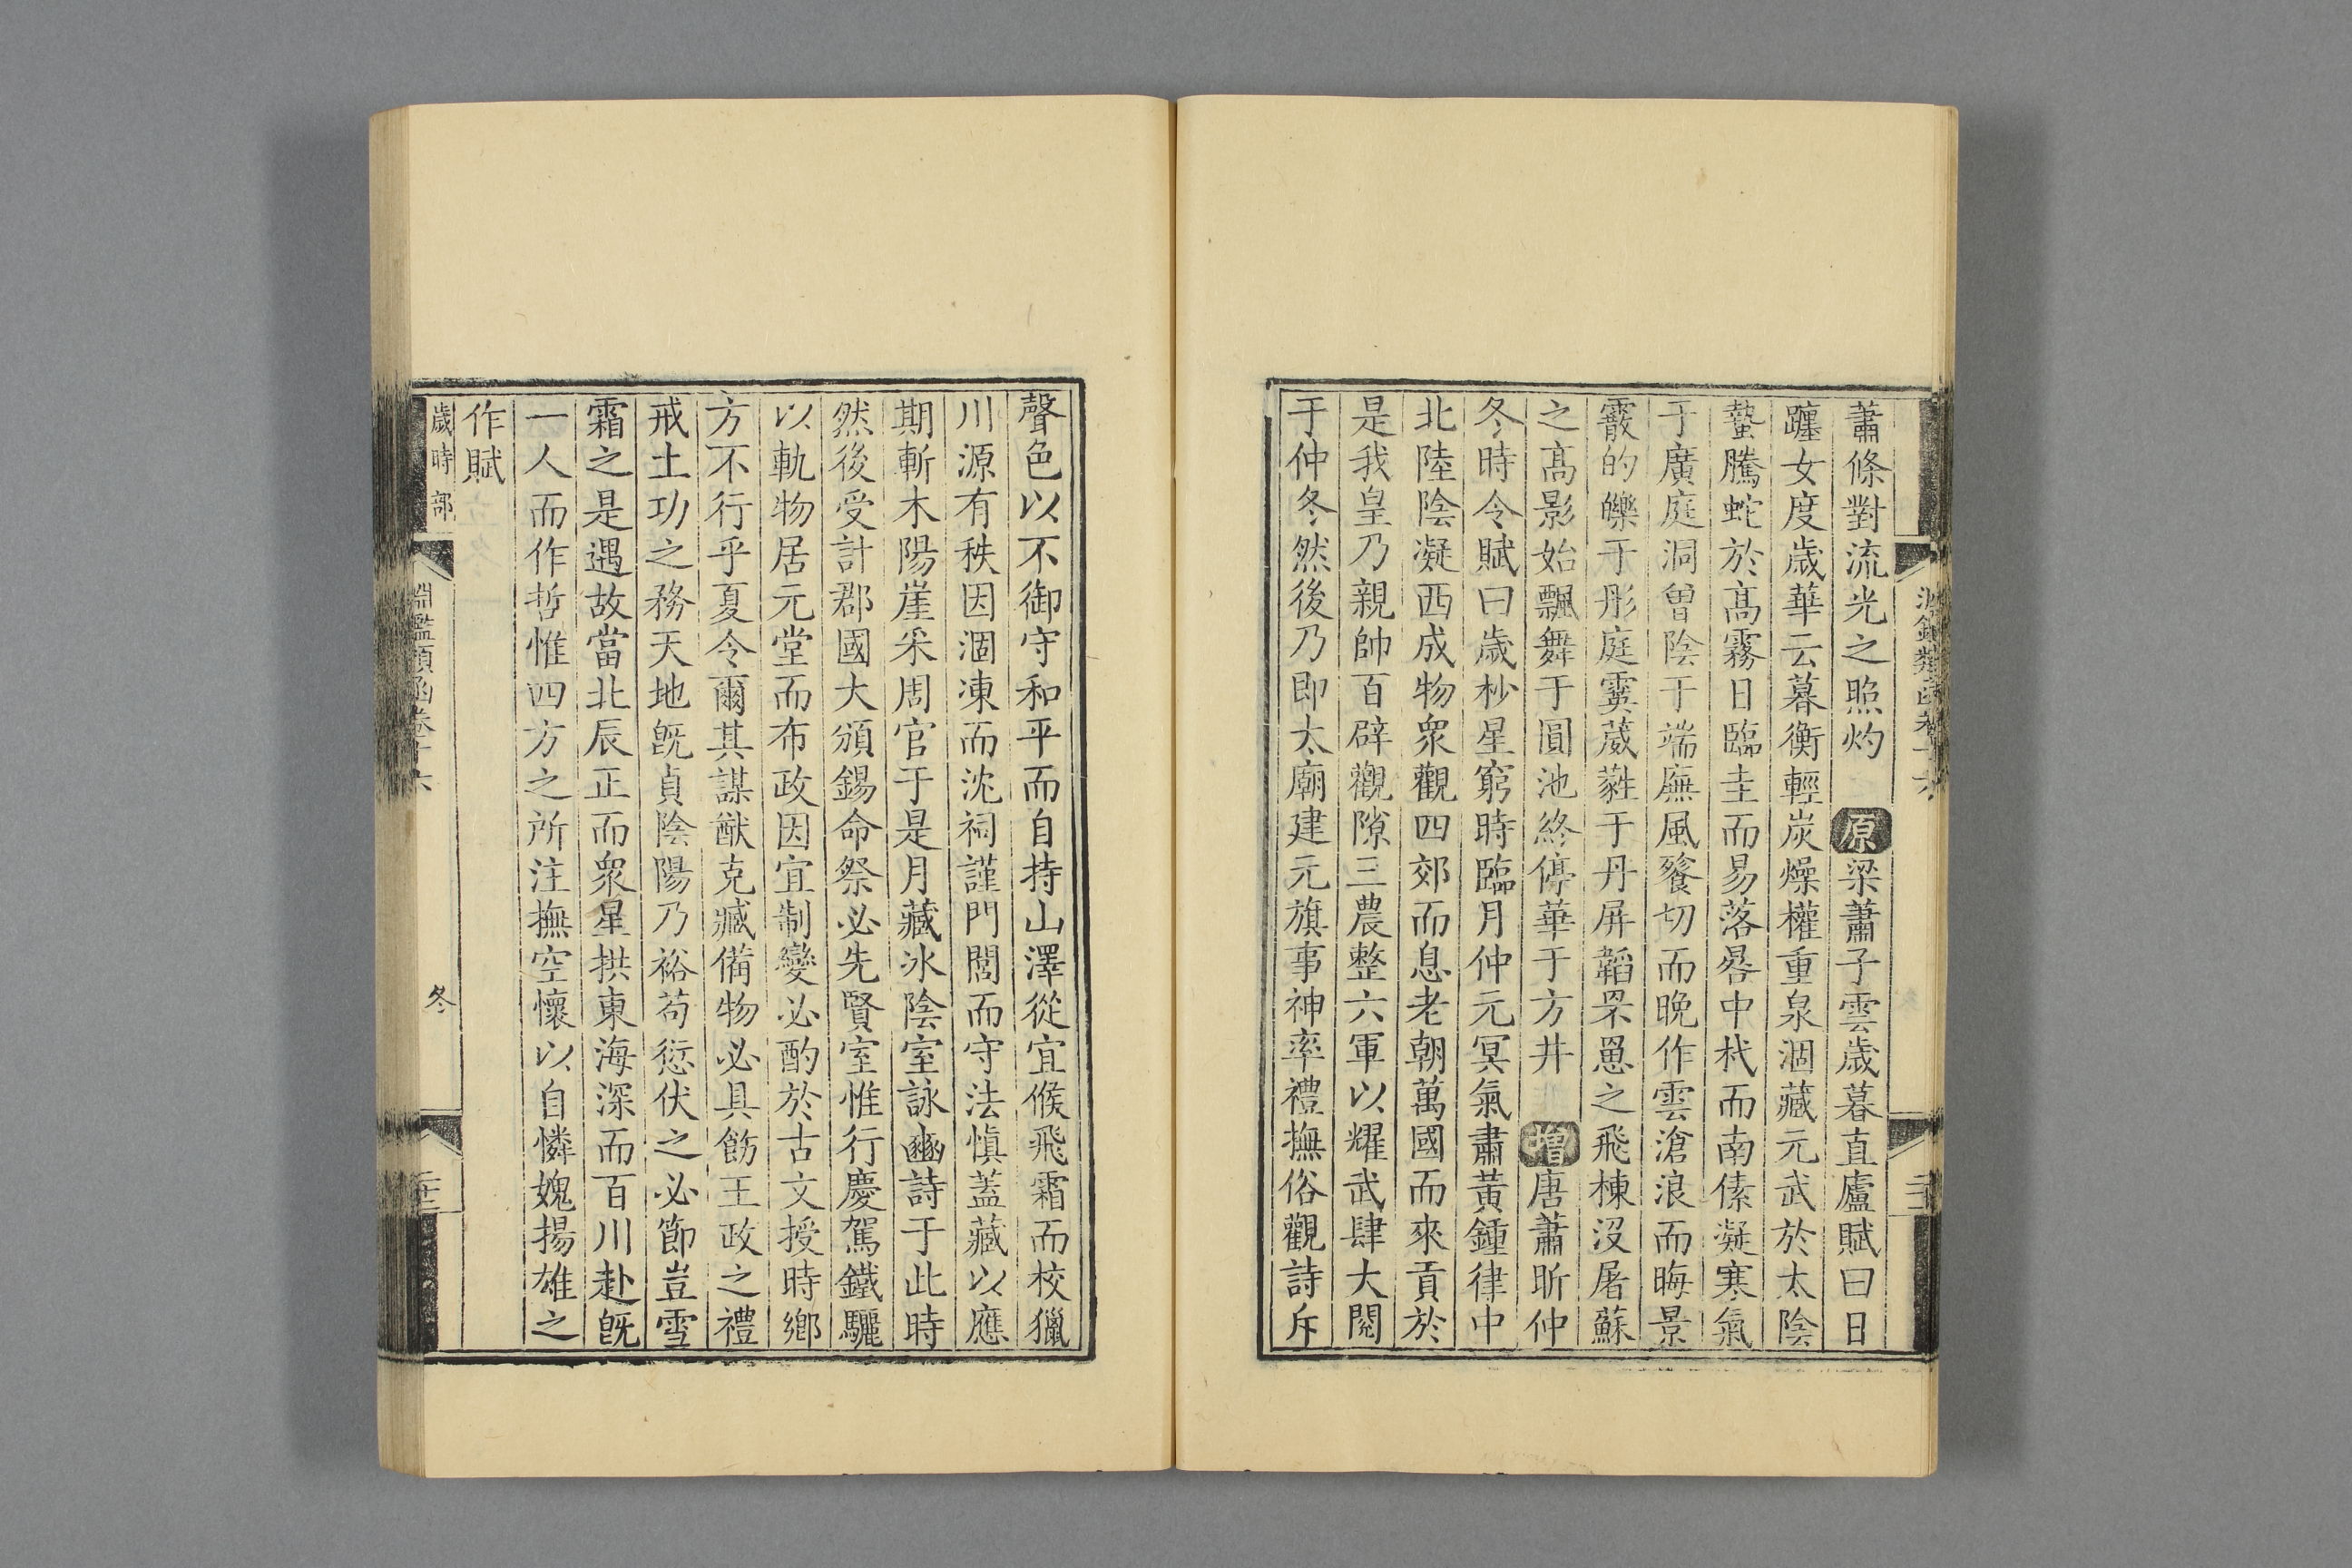 蕭條對流光之照灼 原 梁蕭子雲歲暮直廬賦曰日
躔女度歲華云暮衡輕炭燥權重泉涸藏元武於太陰
蟄騰蛇於髙霧日臨圭而易落晷中杙而南傃凝寒氣
于廣庭洞曾陰于端廡風飱切而晚作雲滄浪而晦景
霰的皪于彤庭霙葳蕤于丹屏韜罘罳之飛棟沒屠蘇
之髙影始飄舞于圓池終停華于方井 增 唐蕭昕仲
冬時令賦曰歲杪星窮時臨月仲元冥氣肅黃鍾律中
北陸陰凝西成物衆觀四郊而息老朝萬國而來貢於
是我皇乃親帥百辟觀隙三農整六軍以耀武肆大閱
于仲冬然後乃即太廟建元旗事神率禮撫俗觀詩斥
聲色以不御守和平而自持山澤從宜候飛霜而校獵
川源有秩因涸凍而沈祠謹門閭而守法慎蓋藏以應
期斬木陽崖釆周官于是月藏冰陰室詠豳詩于此時
然後受計郡國大頒錫命祭必先賢室惟行慶駕鐵驪
以軌物居元堂而布政因宜制變必酌於古文授時鄉
方不行乎夏令爾其謀猷克臧備物必具飭王政之禮
戒土功之務天地旣貞陰陽乃裕苟愆伏之必節豈雪
霜之是遇故當北辰正而衆星拱東海深而百川赴旣
一人而作哲惟四方之所注撫空懷以自憐媿揚雄之
作賦
歲時部
淵鑑類函卷十六
冬